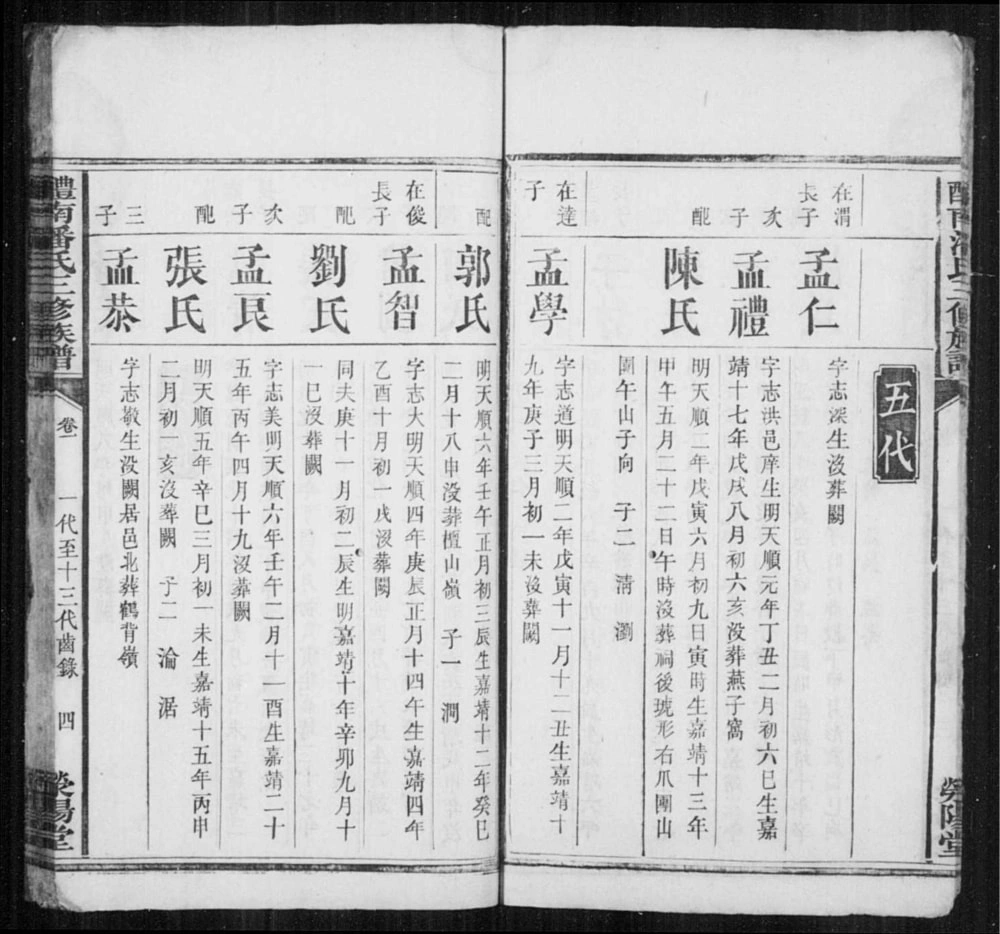 五代
在渭長子
孟仁
字志深生沒葬闕
次子
孟禮
字志洪邑庠生明天順元年丁丑二月初六巳生嘉
靖十七年戊戌八月初六亥没葬燕子窩
配
陳氏
明天順二年戊寅六月初九日寅時生嘉靖十三年
甲午五月二十二日午時沒葬祠後琥形右爪團山
圖午山子向 子二 淸 瀏
在達子
孟學
字志道明天順二年戊寅十一月十二丑生嘉靖十
九年庚子三月初一未沒葬闕
配
郭氏
明天順六年壬午正月初三辰生嘉靖十二年癸巳
二月十八申没葬檀山嶺 子一 澗
在俊長子
孟智
字志大明天順四年庚辰正月十四午生嘉靖四年
乙酉十月初一戌沒葬闕
配
劉氏
同夫庚十一月初二辰生明嘉靖十年辛卯九月十
一巳沒葬闕
次子
孟民
字志美明天順六年壬午二月十一酉生嘉靖二十
五年丙午四月十九沒葬闕
配
張氏
明天順五年辛巳三月初一未生嘉靖十五年丙申
二月初一亥沒葬闕 子二 淪 涺
三子
孟恭
字志敬生没闕居邑北葬鶴背嶺
醴南潘氏三修族譜
卷一
一代至十三代齒錄
四
滎陽堂